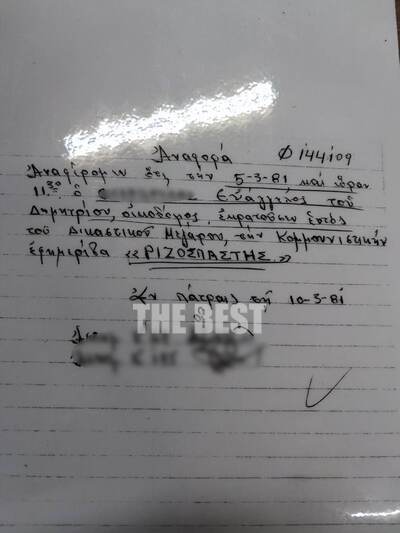 Ἀναφορά Φ 144109
Ἀναφέρομεν ὅτι τήν 5-3-81 καί ὥραν
11.30 ὁ Εὐάγγελος τοῦ
Δημητρίου, οἰκοδόμος, ἐκρατοῦσεν ἐντός
τοῦ Δικαστικοῦ Μεγάρου, τήν Κομμουνιστικήν
ἐφημερίδα «ΡΙΖΟΣΠΑΣΤΗΣ.»
Ἐν Πάτραις τῇ 10-3-81
THE BEST